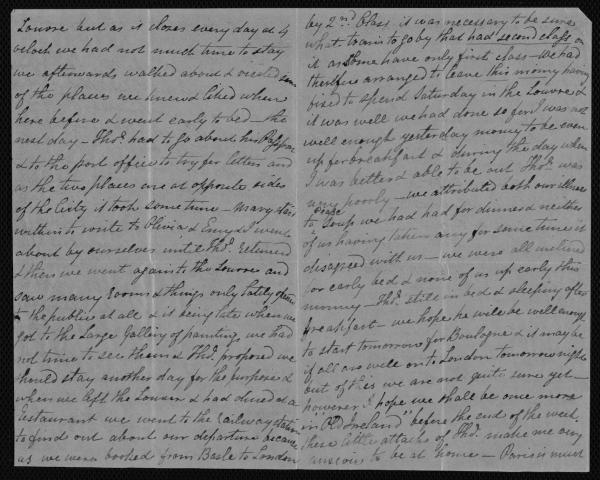 Louvre but as it closes every day at 4
oclock we had not much time to stay
we afterwards walked about & visited some
of the places we knew & liked when
here before & went early to bed — the
next day — Thos. had to go about his Passport
& to the post office to try for letters and
as the two places are at opposite sides
of the City it took some time — Mary staid
within to write to Olivia & Emy & I went
about by ourselves until Thos. returned
& then we went again to the Louvre and
saw many rooms & things only lately open
to the public at all & it being late when we
got to the Large Gallery of painting we had
not time to see them & Thos. proposed we
should stay another day for the purpose &
when we left the Louvre & had dined at a
restaurant we went to the railway station
to find out about our departure because
as we were booked from Basle to London
by 2nd Class it was necessary to be sure
what train to go by that had second class on
it as some have only first class — we had
therefore arranged to leave this morng having
fixed to spend Saturday in the Louvre &
it was well we had done so for I was not
well enough yesterday morng to be even
up for breakfast & during the day when
I was better & able to be out Thos. was
very poorly — we attributed both our illness
to soup we had had for dinner & neither
of us having taken any for some time it
disagreed with us — we were all
for early bed & none of us up early this
morng — Thos. still in bed & sleeping after
breakfast — we hope he will be well enough
to start tomorrow for Boulogne & it may be
if all are well on to London tomorrow night
out of this we are not quite sure yet —
however I hope we shall be once more
in "Old Ireland" before the end of the week.
these little attacks of Thos. make me very
anxious to be at home — Paris is much